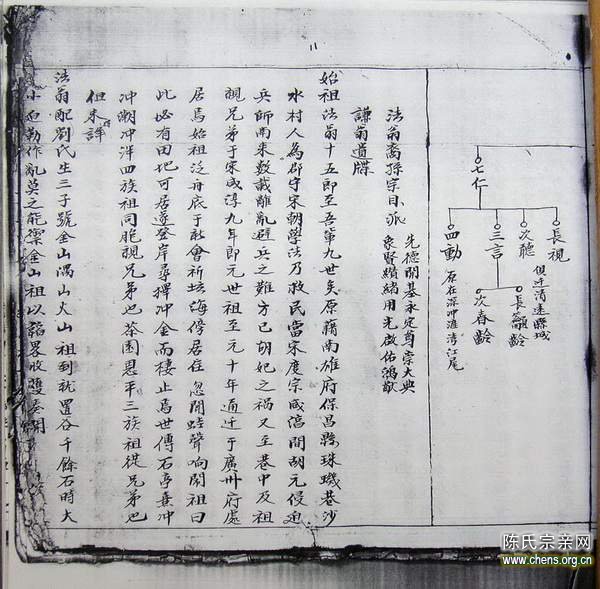 七仁
長視
次聽
三言
四動
俱近清遠縣城
原在深冲淮湾江尾
長齡
次春齡
法翁裔孫宗目派
先德開基永定尊崇大典
象賢纘緒用光啟佑鴻猷
謙翁遺牒
始祖法翁十五郎至吾輩九世矣原藉南雄府保昌縣珠璣巷沙
水村人為郡守宋朝學法乃救民當宋度宗咸淳間胡元侵迫
兵師南來數載離亂避兵之難方已胡妃之禍又至巷中及祖
親兄弟于宋咸淳九年即元世祖至元十年遁迁于廣州府處
居焉始祖泛舟底于社會祈坛海傍居住忽聞蛙聲响閙祖曰
此必有田地可居遂登岸尋擇冲金而棲止焉世傳石亭冲
冲潮冲泮四族祖同胞親兄弟也荅園平三族祖從兄弟也
但未詳
法翁配劉氏生三子號金山隅山大山祖到就置谷千餘石時大
小作亂莫之能禦金山祖以謟畧收雙
11
陈氏宗亲网
www.chens.org.cn